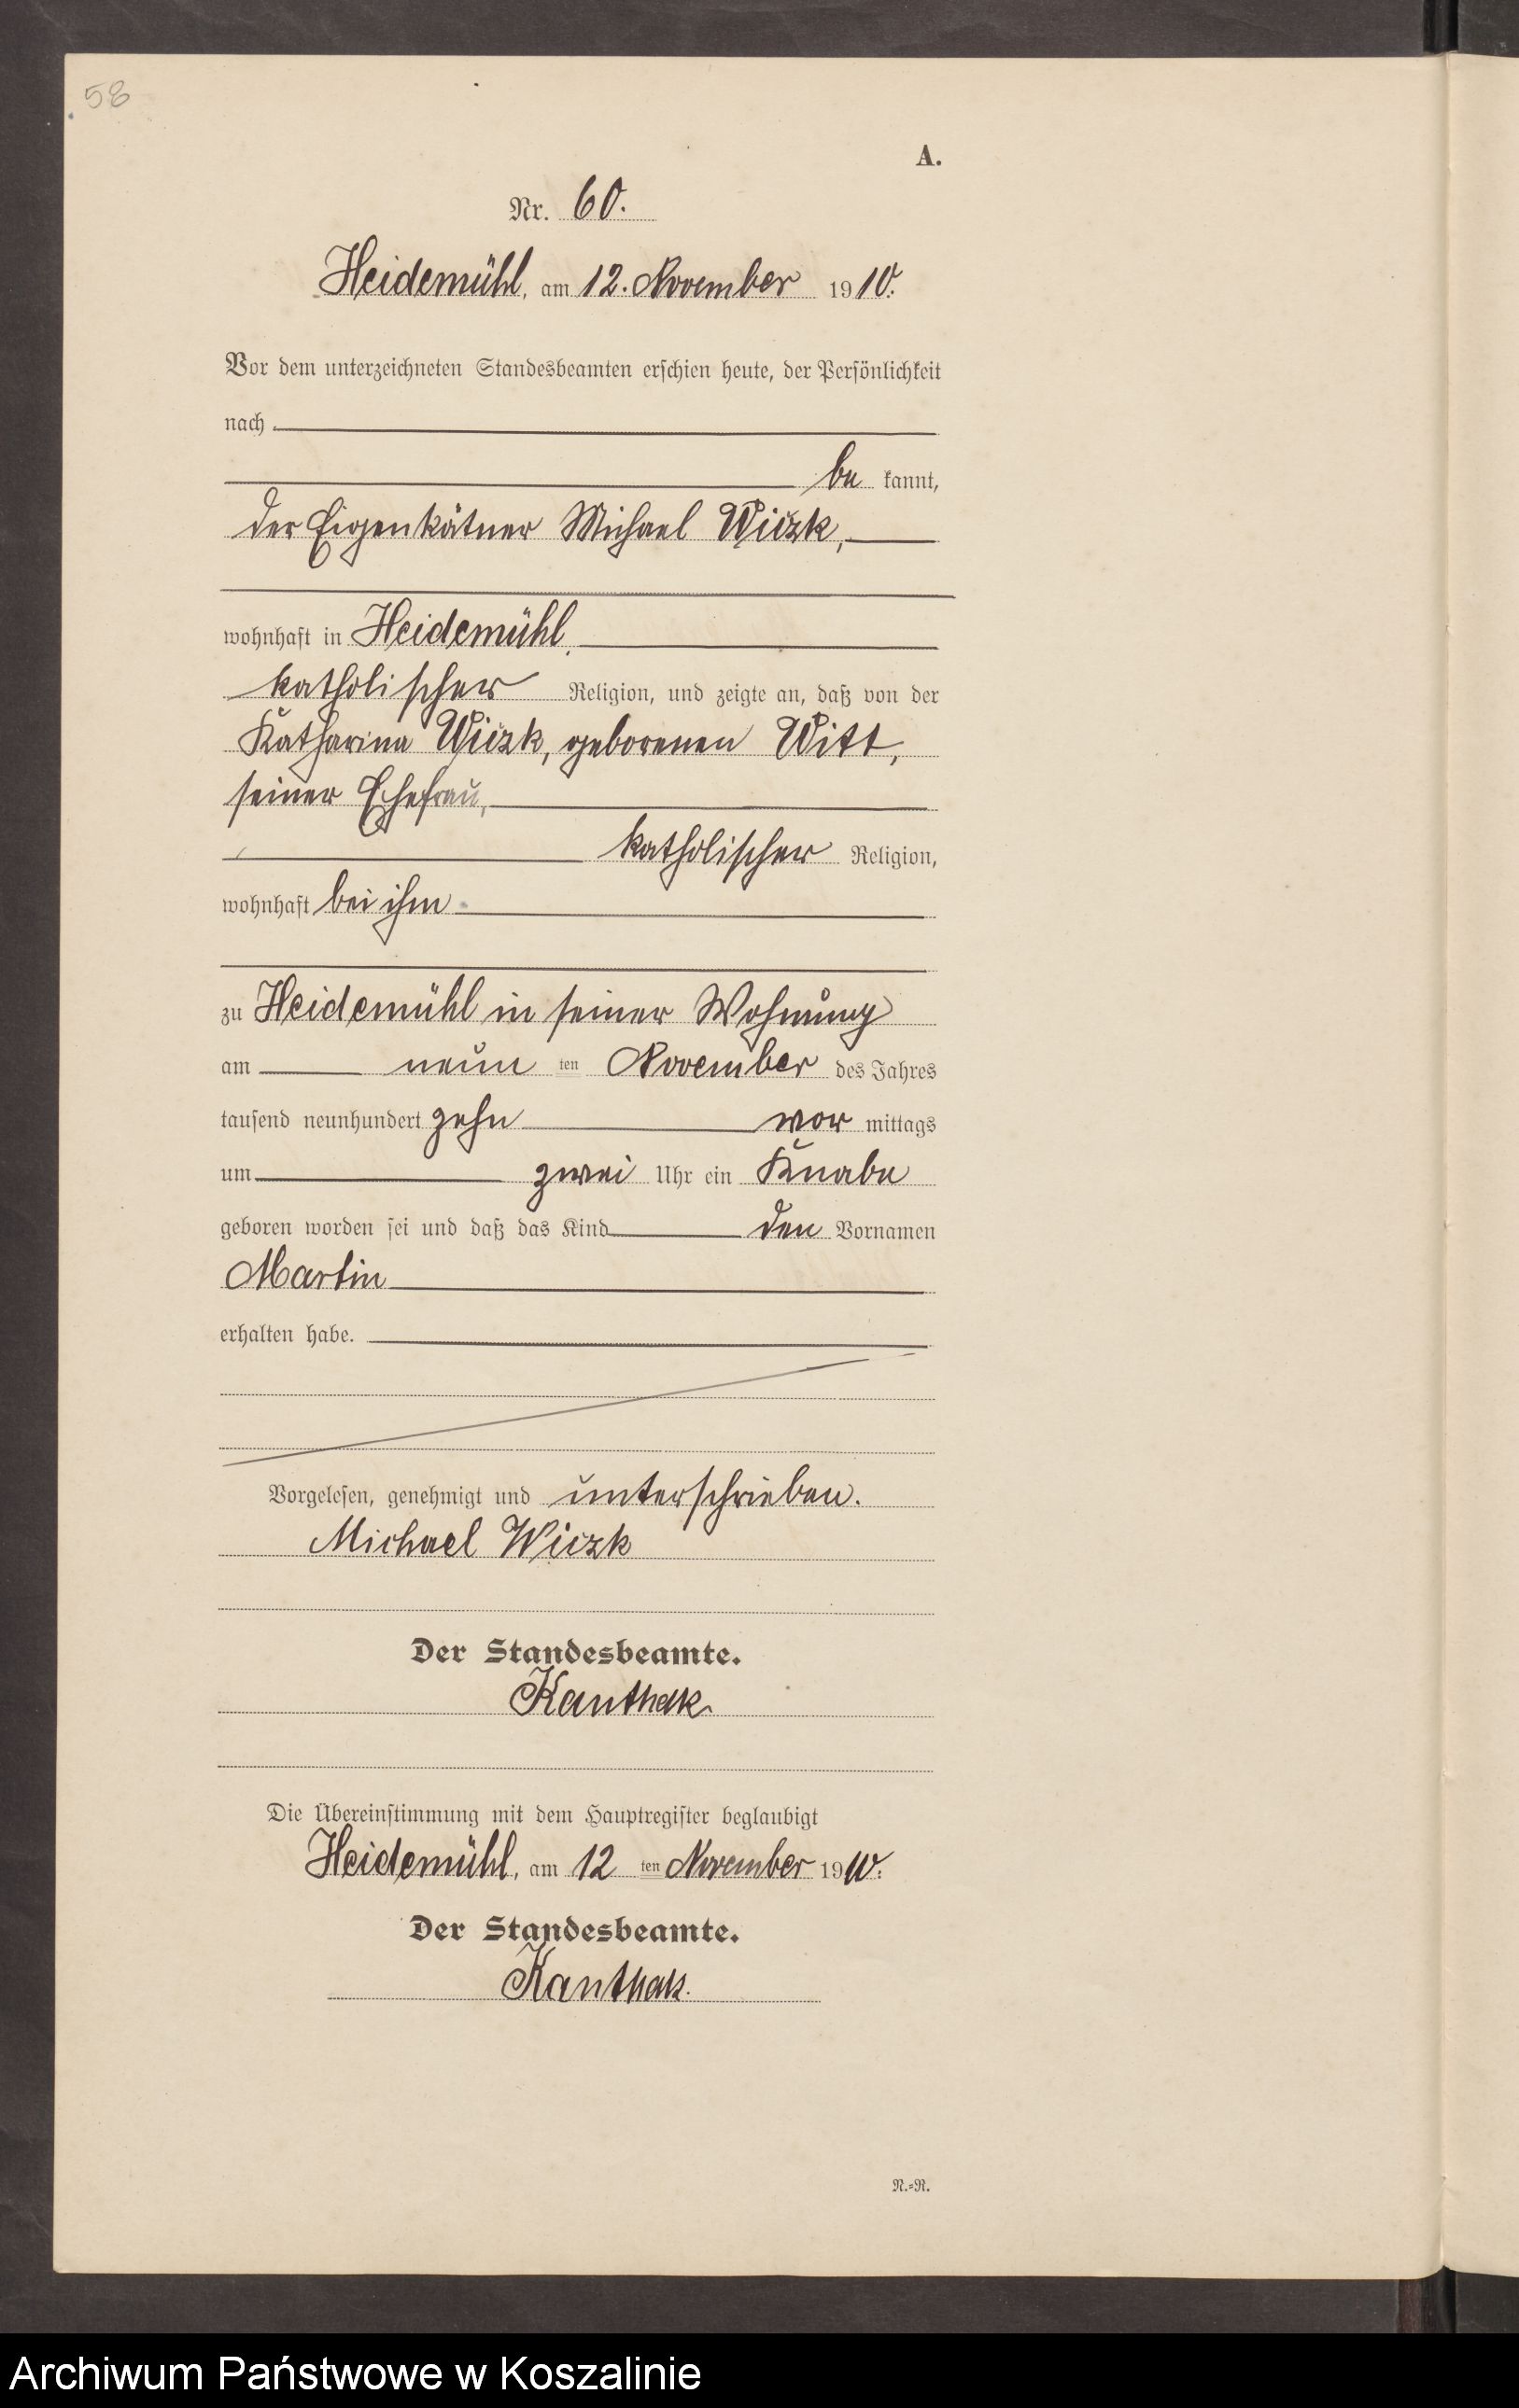 58
A.
Nr. 60.
Heidemühl, am 12. November 1910.
Vor dem unterzeichneten Standesbeamten erschien heute, der Persönlichkeit
nach
be kannt,
der Eigenkätner Michael Wiczk,
wohnhaft in Heidemühl,
katholischer Religion, und zeigte an, daß von der
Katharina Wiczk, geborenen Witt,
seiner Ehefrau,
katholischer Religion,
wohnhaft bei ihm
zu Heidemühl in seiner Wohnung
am neun ten November des Jahres
tausend neunhundert zehn vor mittags
um zwei Uhr ein Knabe
geboren worden sei und daß das Kind den Vornamen
Martin
erhalten habe.
Vorgelesen, genehmigt und unterschrieben.
Michael Wiczk
Der Standesbeamte.
Kanthak
Die Übereinstimmung mit dem Hauptregister beglaubigt
Heidemühl, am 12 ten November 1910.
Der Standesbeamte.
Kanthak.
N.=R.
Archiwum Państwowe w Koszalinie